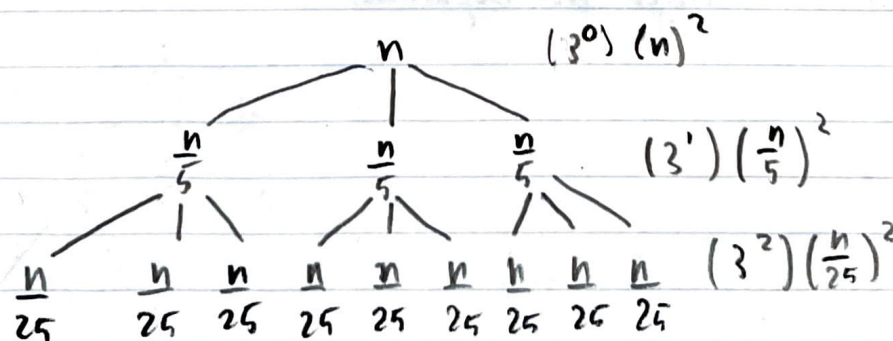 n (3⁰) (n)²
n/5 n/5 n/5 (3¹)(n/5)²
n/25 n/25 n/25 n/25 n/25 n/25 n/25 n/25 n/25 (3²)(n/25)²